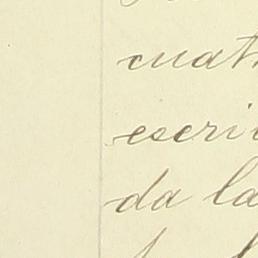 cuat
escri
da la